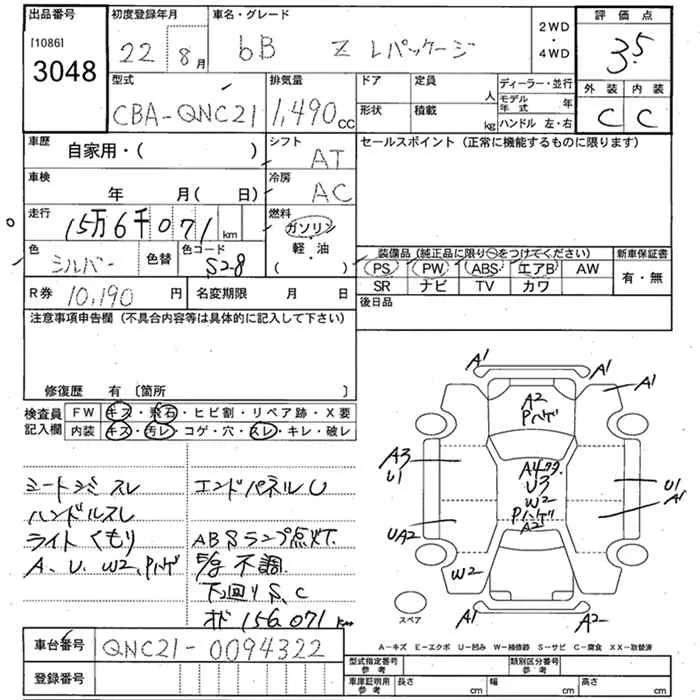 出品番号 初度登録年月 車名・グレード 2WD・4WD 評価点
[1086] 3048 22 8月 bB Z Lパッケージ 3.5
型式 排気量 ドア 定員 人 ディーラー・並行 外装 内装
CBA-QNC21 1,490cc 形状 積載 kg モデル年式 年 ハンドル 左・右 C C
車歴 自家用・( ) シフト AT セールスポイント (正常に機能するものに限ります)
車検 年 月( 日) 冷房 AC
走行 15万6千071km 燃料 ガソリン・軽・油 ( )
色 シルバー 色替 色コード S28
装備品 (純正品に限り○をつけてください) 新車保証書
PS PW ABS エアB AW 有・無
SR ナビ TV カワ
R券 10,190円 名変期限 月 日 後日品
注意事項申告欄 (不具合内容等は具体的に記入して下さい)
修復歴 有 [箇所 ]
検査員記入欄 FW キズ・飛石・ヒビ割・リペア跡・X要
内装 キズ・汚レ・コゲ・穴・スレ・キレ・破レ
シートシミスレ エンドパネルU
ハンドルスレ
ライトくもり ABSランプ点灯
A、U、W2、Pハゲ 不調
下回りS、C
156,071km
A1 A1 A1
A2
Pハゲ
A3
U1
A4
U3
W2
Pハゲ
A2
U1
A1
UA2
W2
スペア A1 A2
A-キズ E-エクボ U-凹み W-補修跡 S-サビ C-腐食 XX-取替済
車台番号 QNC21-0094322
登録番号
型式指定番号 参考 類別区分番号 参考
車庫証明用 参考 長さ cm 幅 cm 高さ cm